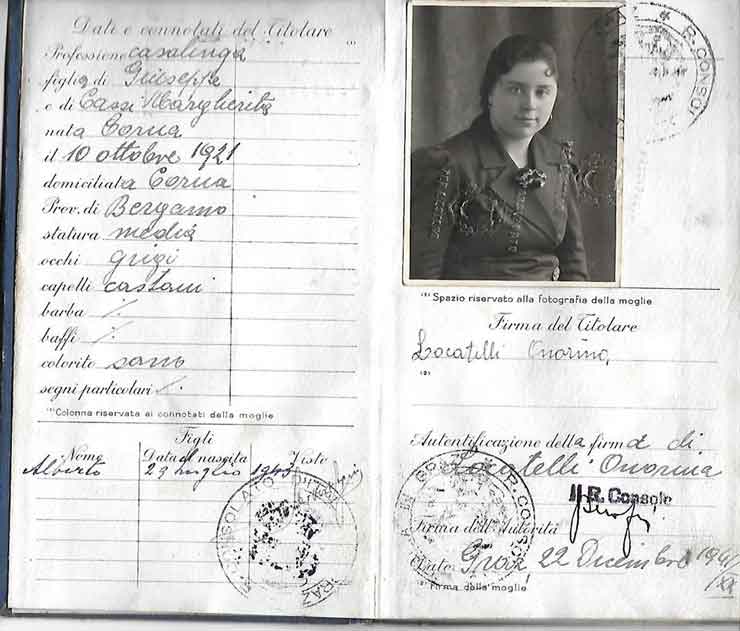 Dati e connotati del Titolare
(1)
Professione casalinga
figlia di Giuseppe
e di Cassi Margherita
nata Corna
il 10 ottobre 1921
domiciliata Corna
Prov. di Bergamo
statura media
occhi grigi
capelli castani
barba /.
baffi /.
colorito sano
segni particolari /.
(1) Colonna riservata ai connotati della moglie
Figli
Nome Data di nascita Visto
Alberto 23 luglio 1943
R. CONSOL
(2) Spazio riservato alla fotografia della moglie
Firma del Titolare
Locatelli Onorina
(2)
Autentificazione della firma di
Locatelli Onorina
Il R. Console
Firma dell'Autorità
Data Graz 22 Dicembre 1941
/XX
(2) Firma della moglie
CONSOLATO
GRAZ
R. CONSOL